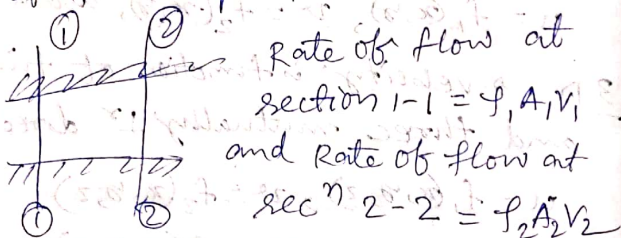 ① ②
Rate of flow at
section 1-1 = ρ₁A₁V₁
and Rate of flow at
secⁿ 2-2 = ρ₂A₂V₂
① ②